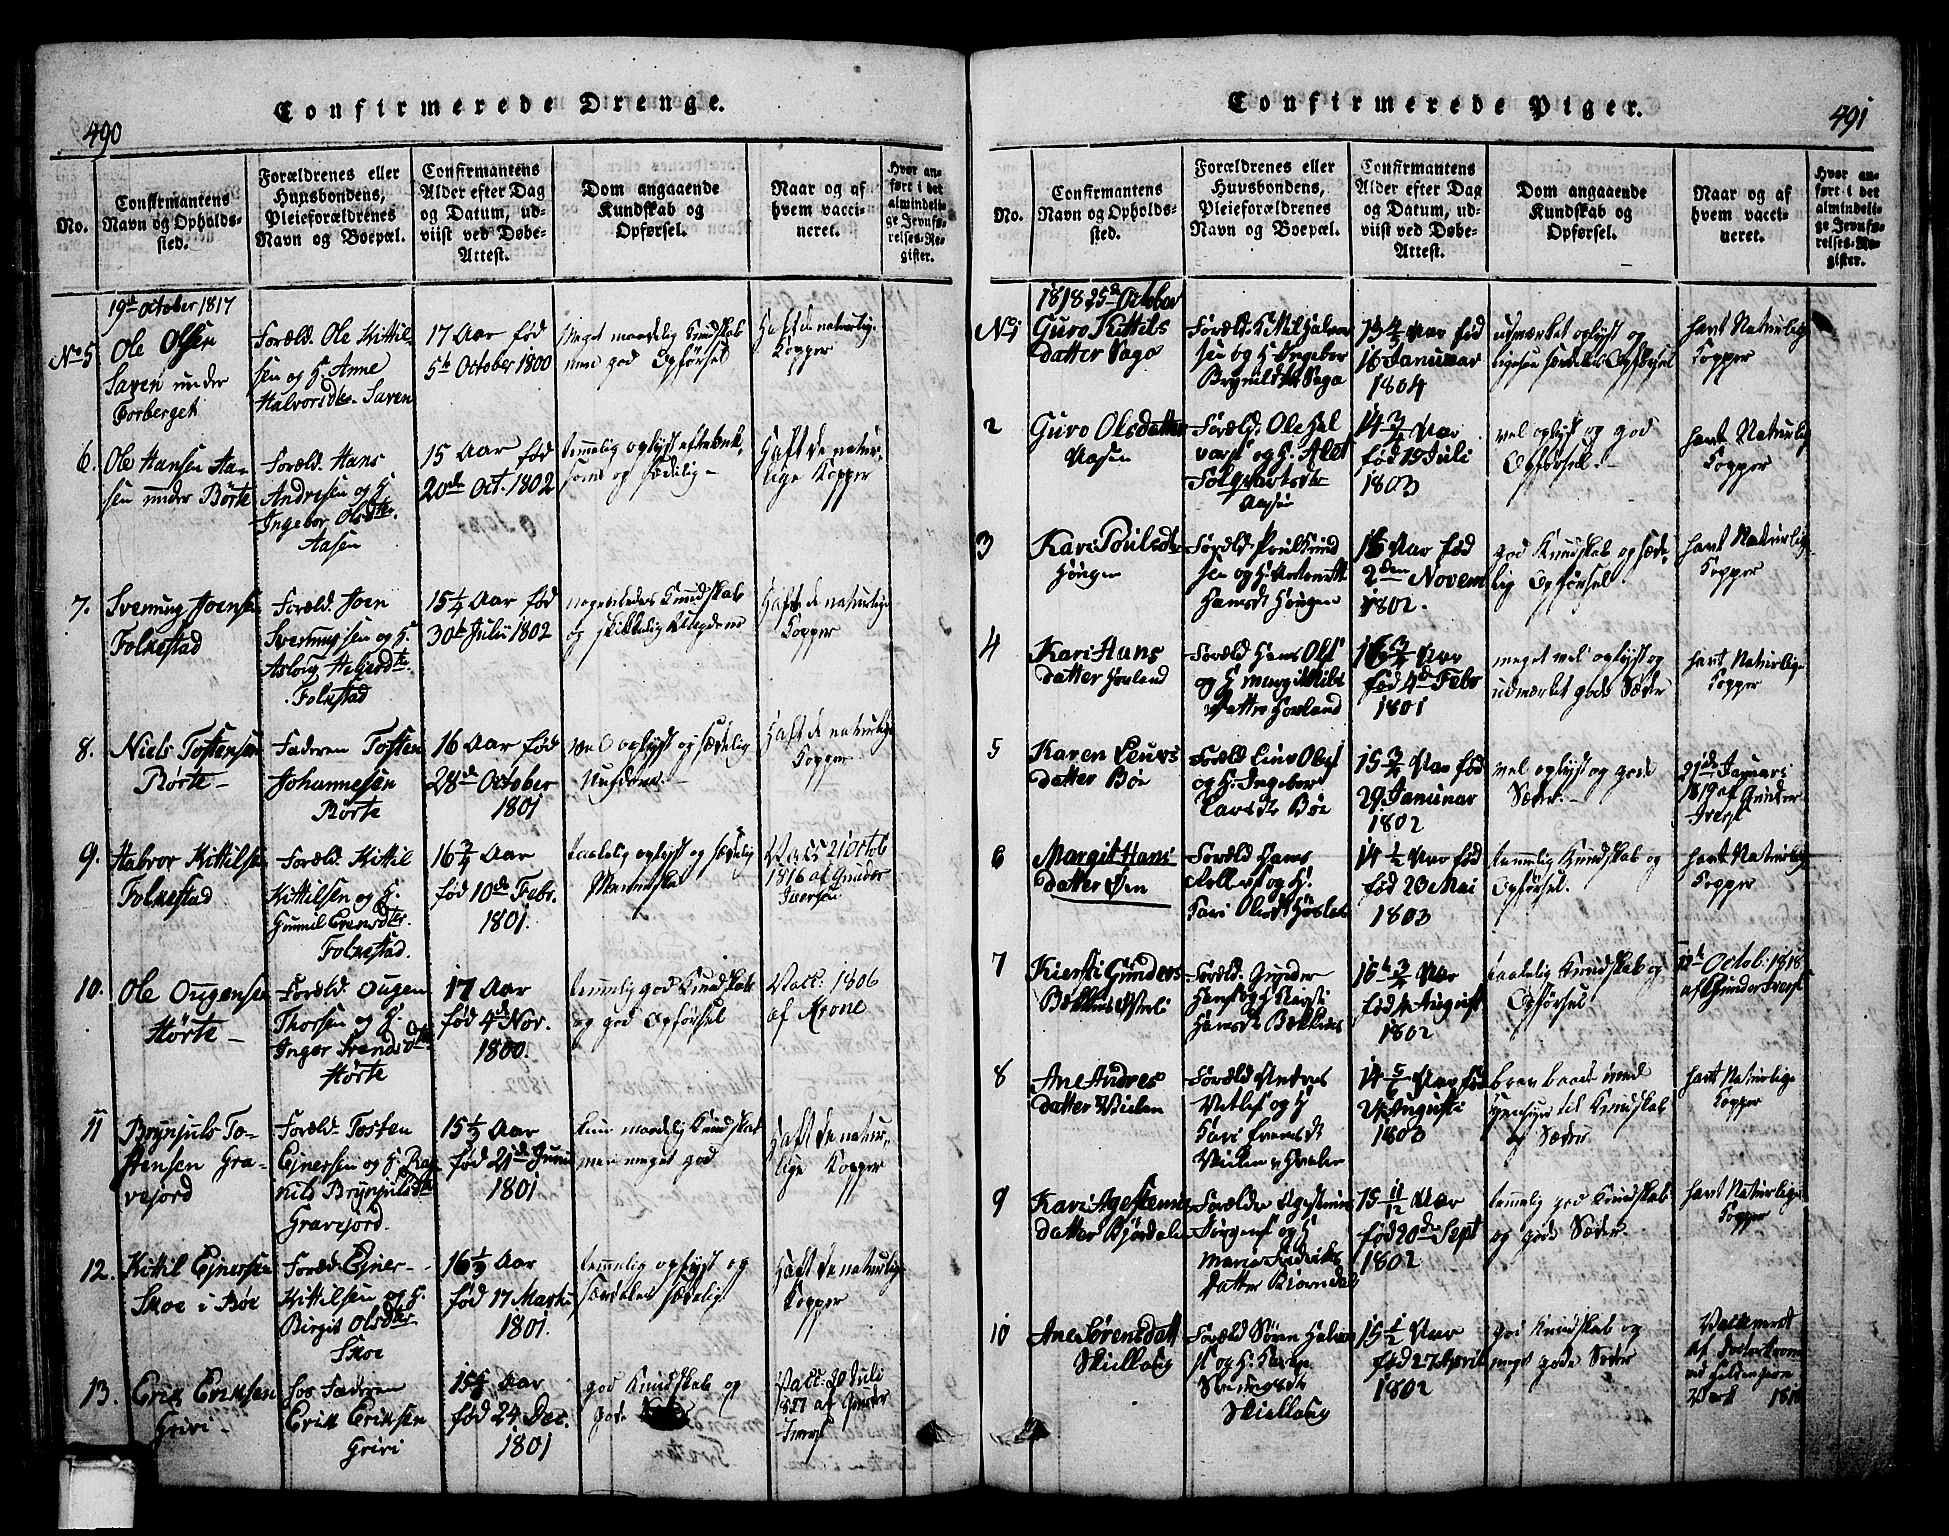 490
Confirmerede Drenge.
No.
Confirmantens
Navn og Opholds-
sted.
Forældrenes eller
Huusbondens,
Pleieforældrenes
Navn og Boepæl.
Confirmantens
Alder efter Dag
og Datum, ud-
viist ved Døbe-
Attest.
Dom angaaende
Kundskab og
Opførsel.
Naar og af
hvem vacci-
neret.
Hvor an-
ført i det
almindeli-
ge Jevnfø-
relses-Re-
gister.
19de October 1817
No 5
Ole Olsen
Saven under
Forberget
Foræld. Ole Kittil-
sen og H. Anne
Halvorsdtr. Saven
17 Aar fød
5te October 1800
Meget maadelig Kundskab
men god Opførsel
Haft de naturlig.
Kopper
6.
Ole Hansen Aa-
sen under Børte
Foræld. Hans
Andresen og H.
Ingebor Olsdtr.
Aasen
15 Aar fød
20de Oct. 1802
temmelig oplyst eftertænk-
som og sædelig -
Haft de natur-
lige Kopper
7.
Svenung Joensen
Folkestad
Foræld. Joen
Svenungsen og H.
Asloug Heljesdtr.
Folkestad
15 1/4 Aar fød
30te Julii 1802
nogenledes Kundskab
og skikkelig
Haft de naturlige
Kopper
8.
Niels Tostensen
Børte -
Faderen Tosten
Johannesen
Børte
16 Aar fød
28de October
1801
Vel oplyst og sædelig
Haft de naturlige
Kopper
9.
Halvor Kittilsen
Folkestad
Foræld. Kittil
Kittilsen og H.
Gunnil Evensdtr.
Folkestad.
16 3/4 Aar
fød 10de Febr.
1801.
taalelig oplyst og sædelig
Menneske
Vacc. 21 Octob
1816 af Gunder
Iversen
10.
Ole Ougensen
Hørte -
Foræld. Ougen
Thorsen og H.
Inger Svendsdtr.
Hørte
17 Aar
fød 4de Nov.
1800.
temmelig god Kundskab
og god Opførsel
Vacc. 1806
af Krone
11
Brynjuls To-
stensen Gra-
vejord
Foræld. Tosten
Ejnersen og H. Rag-
nild Brynjulsdtr
Gravejord.
15 1/2 Aar
fød 21de Junii
1801
kun maadelig Kundskab
men meget god
Haft de natur-
lige Kopper
12.
Kittil Ejnersen
Skoe i Bøe
Foræld. Ejner
Kittilsen og H.
Birgit Olsdtr
Skoe
16 1/2 Aar
fød 17 Martii
1801.
temmelig oplyst og
særdeles sædelig
Haft de naturlige
Kopper
13.
Erik Eriksen
Grivi -
hos Faderen
Erik Eriksen
Grivi
15 5/6 Aar
fød 24 Dec.
1801
god Kundskab og
gode
Vacc. 20 Juli
1817 af Gunder
Ivers
491
Confirmerede Piger.
No.
Confirmantens
Navn og Opholds-
sted.
Forældrenes eller
Huusbondens,
Pleieforældrenes
Navn og Boepæl.
Confirmantens
Alder efter Dag
og Datum, ud-
viist ved Døbe-
Attest.
Dom angaaende
Kundskab og
Opførsel.
Naar og af
hvem vacci-
neret.
Hvor an-
ført i det
almindeli-
ge Jevnfø-
relses-Re-
gister.
1818 25de October
No 1
Guro Kittils
datter Saga
Foræld. Kittil Halvor
sen og H. Ingebor
Brynildsdtr Saga
fød
16 Januar
1804
udmærket oplyst og
ligesaa sædelig Opførsel
havt Naturlige
Kopper
2
Guro Olsdatter
Aasen
Foræld. Ole Hal
vors og H. Alet
Aasen
14 3/4 Aar
fød 19 Juli
1803
vel oplyst og god
Opførsel. -
havt Naturlig
Kopper
3
Kari Poulsdtr
Hougen
Foræld. Poul Knud
sen og H. Antonette
Hansdt Hougen
16 Aar fød
2den Novem
1802.
god Kundskab og sæde-
lig Opførsel.
havt Naturlig
Kopper
4
Kari Hans
datter Hovland
Foræld Hans Ols
og H. Margit Nils
datter Hovland
16 3/4 Aar
fød 4de Febr
1801
meget vel oplyst og
udmærket gode Sæder
havt Naturlige
Kopper
5
Karen Leurs
datter Bøe
og H. Ingebor
Larsdt Bøe
15 3/4 Aar fød
29 Januar
1802
vel oplyst og gode
Sæder. -
21de Januari
1819 af Gunder
Ivers
6
Margit Hans
datter Øen
Foræld Hans
Rollefs og H.
Kari Olsdt
14 1/2 Aar fød
23 Mai
1803
temmelig Kundskab og
Opførsel.
havt Naturlig
Kopper
7
Kiersti Gunders
Foræld. Gunder
Hans og H Kiersti
Hansdt
16 3/4 Aar
fød August
1802
taalelig Kundskab og
Opførsel
12te Octob: 1818
af Gunder Ivers
8
Ane Andres
datter Vielen
Foræld Andres
Detlefs og H
Kari Evensdt
14 5/6 Aar fød
24 Augusti
1803
brav baade med
Hensyn til Kundskab
og Sæder
havt Naturlige
Kopper
9
Kari Agestens
datter Bjørdalen
Forældre Agesteins
Jørgens og H
Maria Fredriks
datter Biørndal
15 11/12 Aar
fød 20de Sept
1802
temmelig god Kundskab
og gode Sæder.
havt Naturlige
Kopper
10
Ane Sørensdatt
Skielboug
Foræld Søren Halvor
s og H. Karen
Skielboug
15 1/2 Aar
fød 27 April
1802
god Kundskab og
meget gode Sæder
Vaccineret
af Doctor
ved
Verk 1810